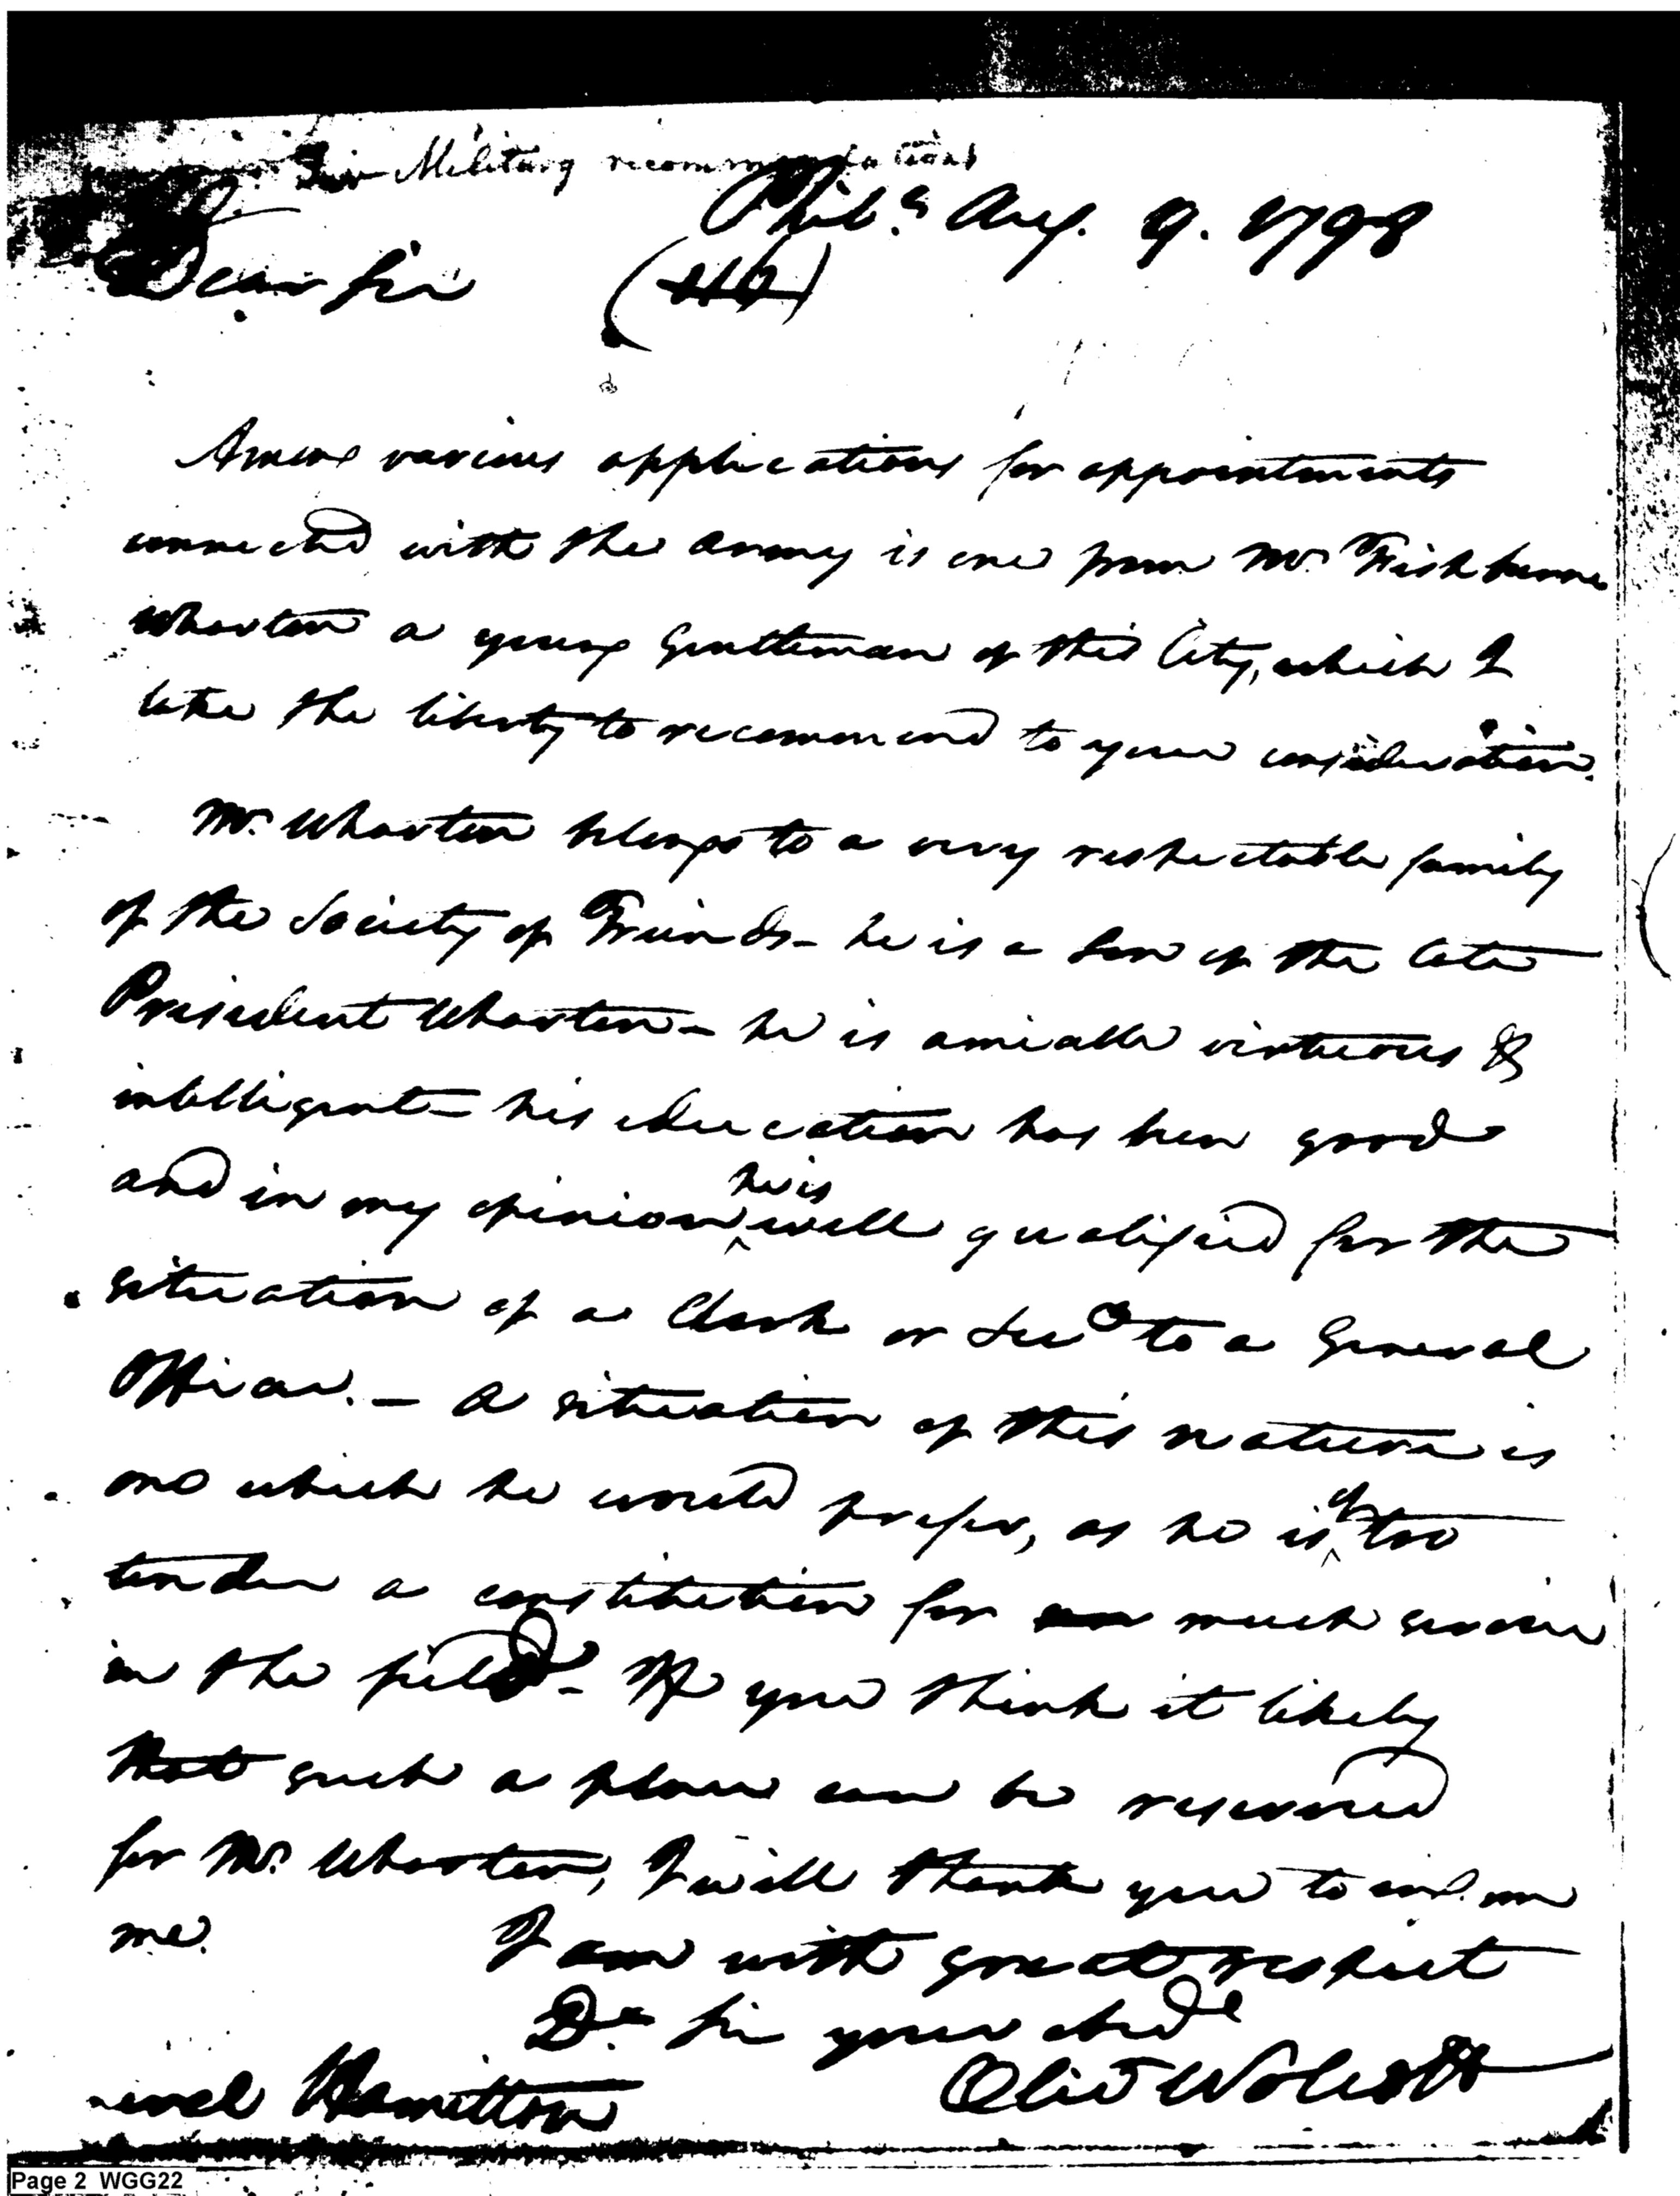 Military recommendations
Phila. Aug. 9. 1798
Dear Sir
Among various applications for appointments
connected with the army is one from Mr. Fishbourne
Wharton a young Gentleman of this City, which I
take the liberty to recommend to your consideration.
Mr. Wharton belongs to a very respectable family
of the Society of Friends – he is a Son of the late
President Wharton – he is amiable virtuous &
intelligent – his education has been good
and in my opinion he is well qualified for the
situation of a Clerk or Secy to a General
Officer. – A situation of this nature is
one which he would prefer, as he is of too
tender a constitution for much service
in the field – If you think it likely
that such a place can be reserved
for Mr. Wharton, I will thank you to inform
me.
I am with great respect
Dr. Sir your obedt
Oliv Wolcott
Hamilton
Page 2 WGG22